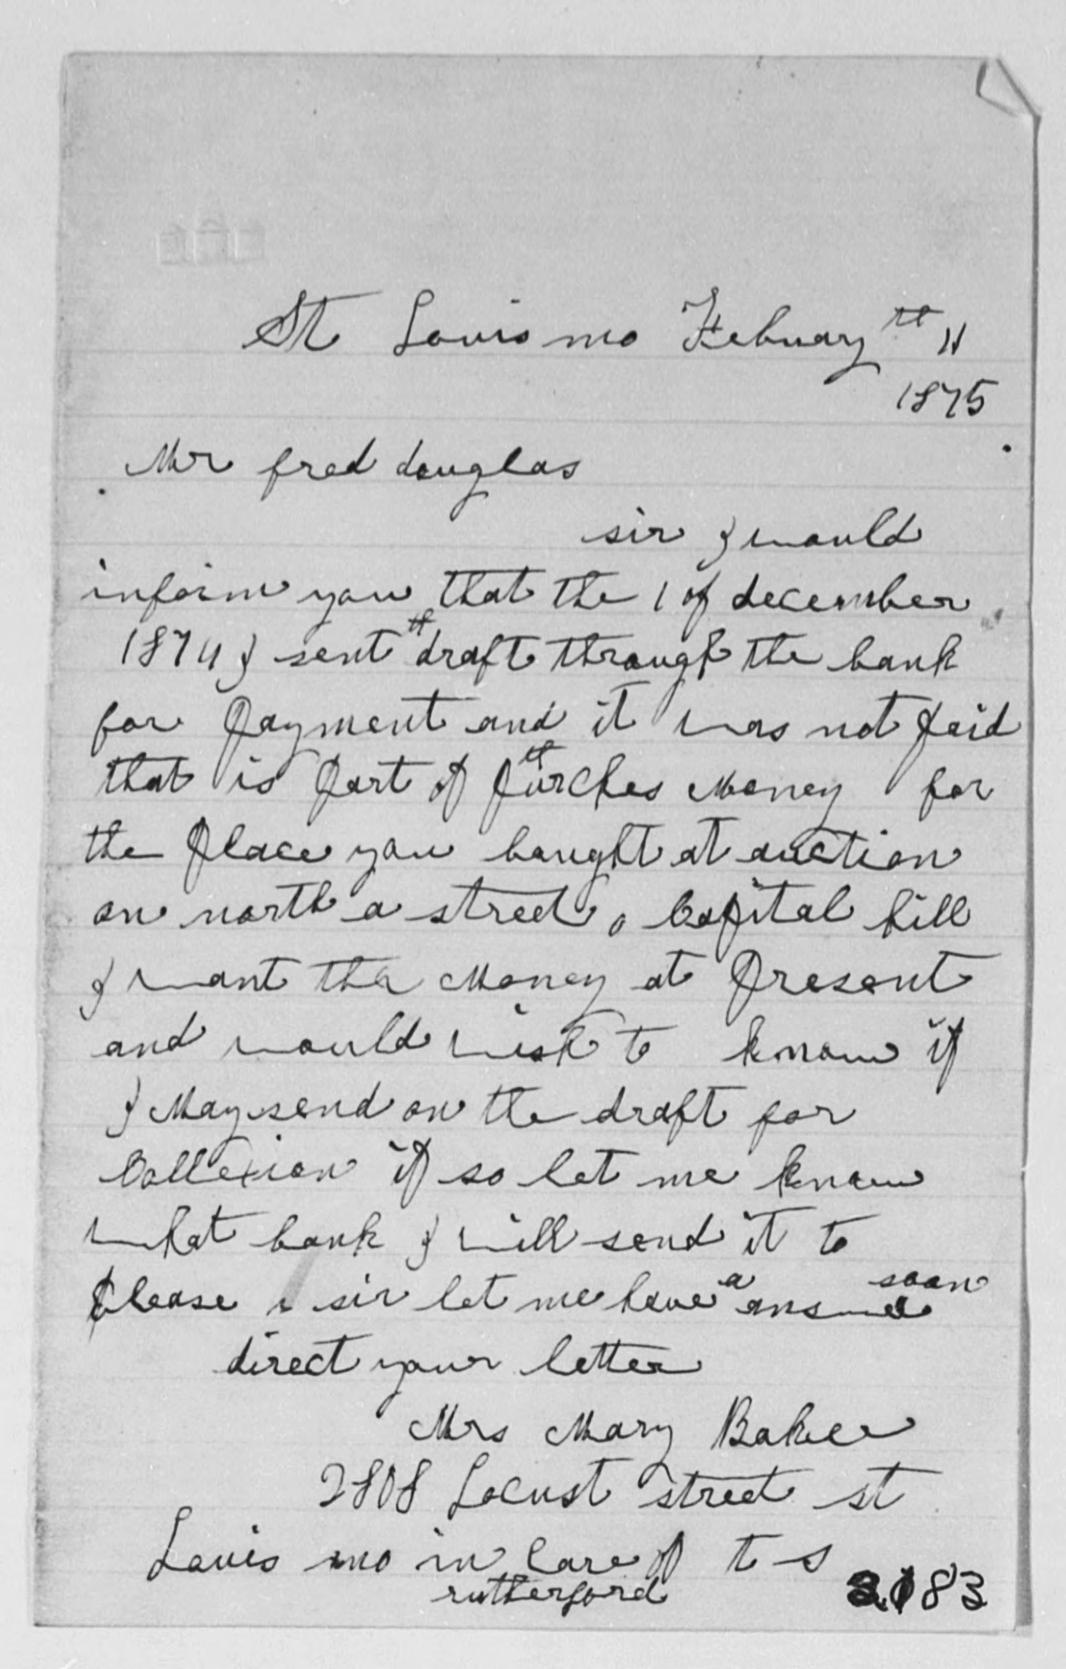 St Louis mo Febuary th 11
1875
Mr fred douglas
sir I would
inform you that the 1 of december
1874 I sent draft through the bank
for payment and it was not paid
that is part of purches Money for
the place you baught at auction
on north a street, Capital hill
I want the Money at present
and would wish to know if
I May send on the draft for
Collexion if so let me know
what bank I will send it to
please sir let me have a answe soon
direct your letter
Mrs Mary Baker
2808 Locust street st
Louis mo in Care of t s
rutherford
83